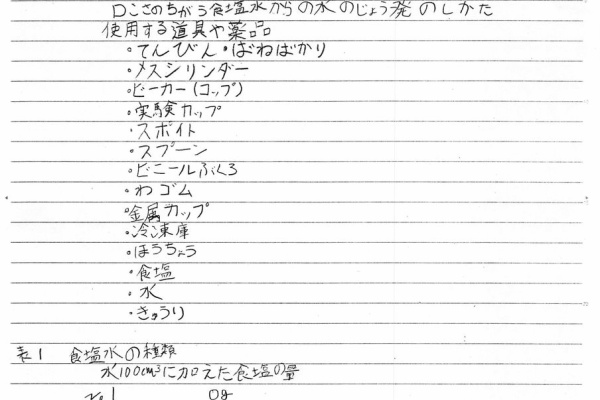 Dこさのちがう食塩水からの水のじょう発のしかた
使用する道具や薬品
・てんびん・ばねばかり
・メスシリンダー
・ビーカー(コップ)
・実験カップ
・スポイト
・スプーン
・ビニールぶくろ
・わゴム
・金属カップ
・冷凍庫
・ほうちょう
・食塩
・水
・きゅうり
表1 食塩水の種類
水100cm³に加えた食塩の量
No.1 0g